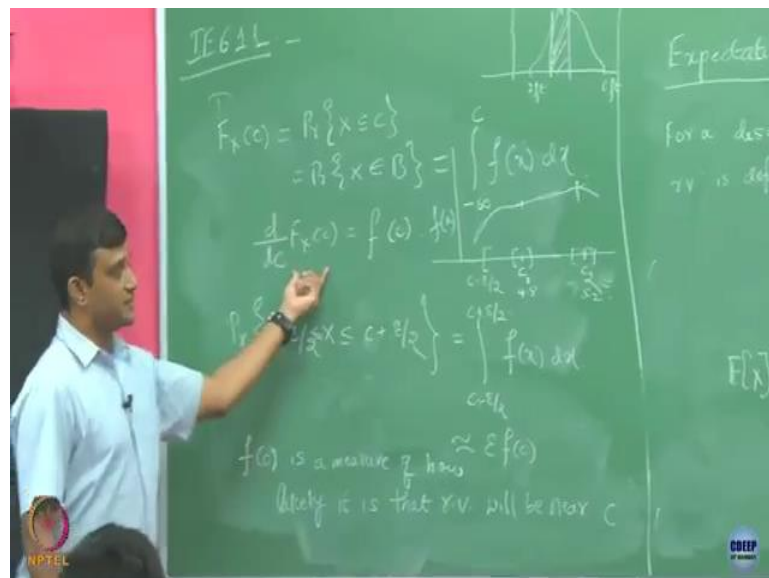 IE611 -
F_X(c) = Pr{X ≤ c}
= Pr{X ∈ B} = ∫_{-∞}^{c} f(x) dx
d/dc F_X(c) = f(c).
f(x)
c-ε/2
Pr{c-ε/2 ≤ X ≤ c+ε/2} = ∫_{c-ε/2}^{c+ε/2} f(x) dx
≈ εf(c)
f(c) is a measure of how
likely it is that r.v. will be near c
Expectati
For a
r.v. is def
E[X]
NPTEL
CDEEP
IIT BOMBAY